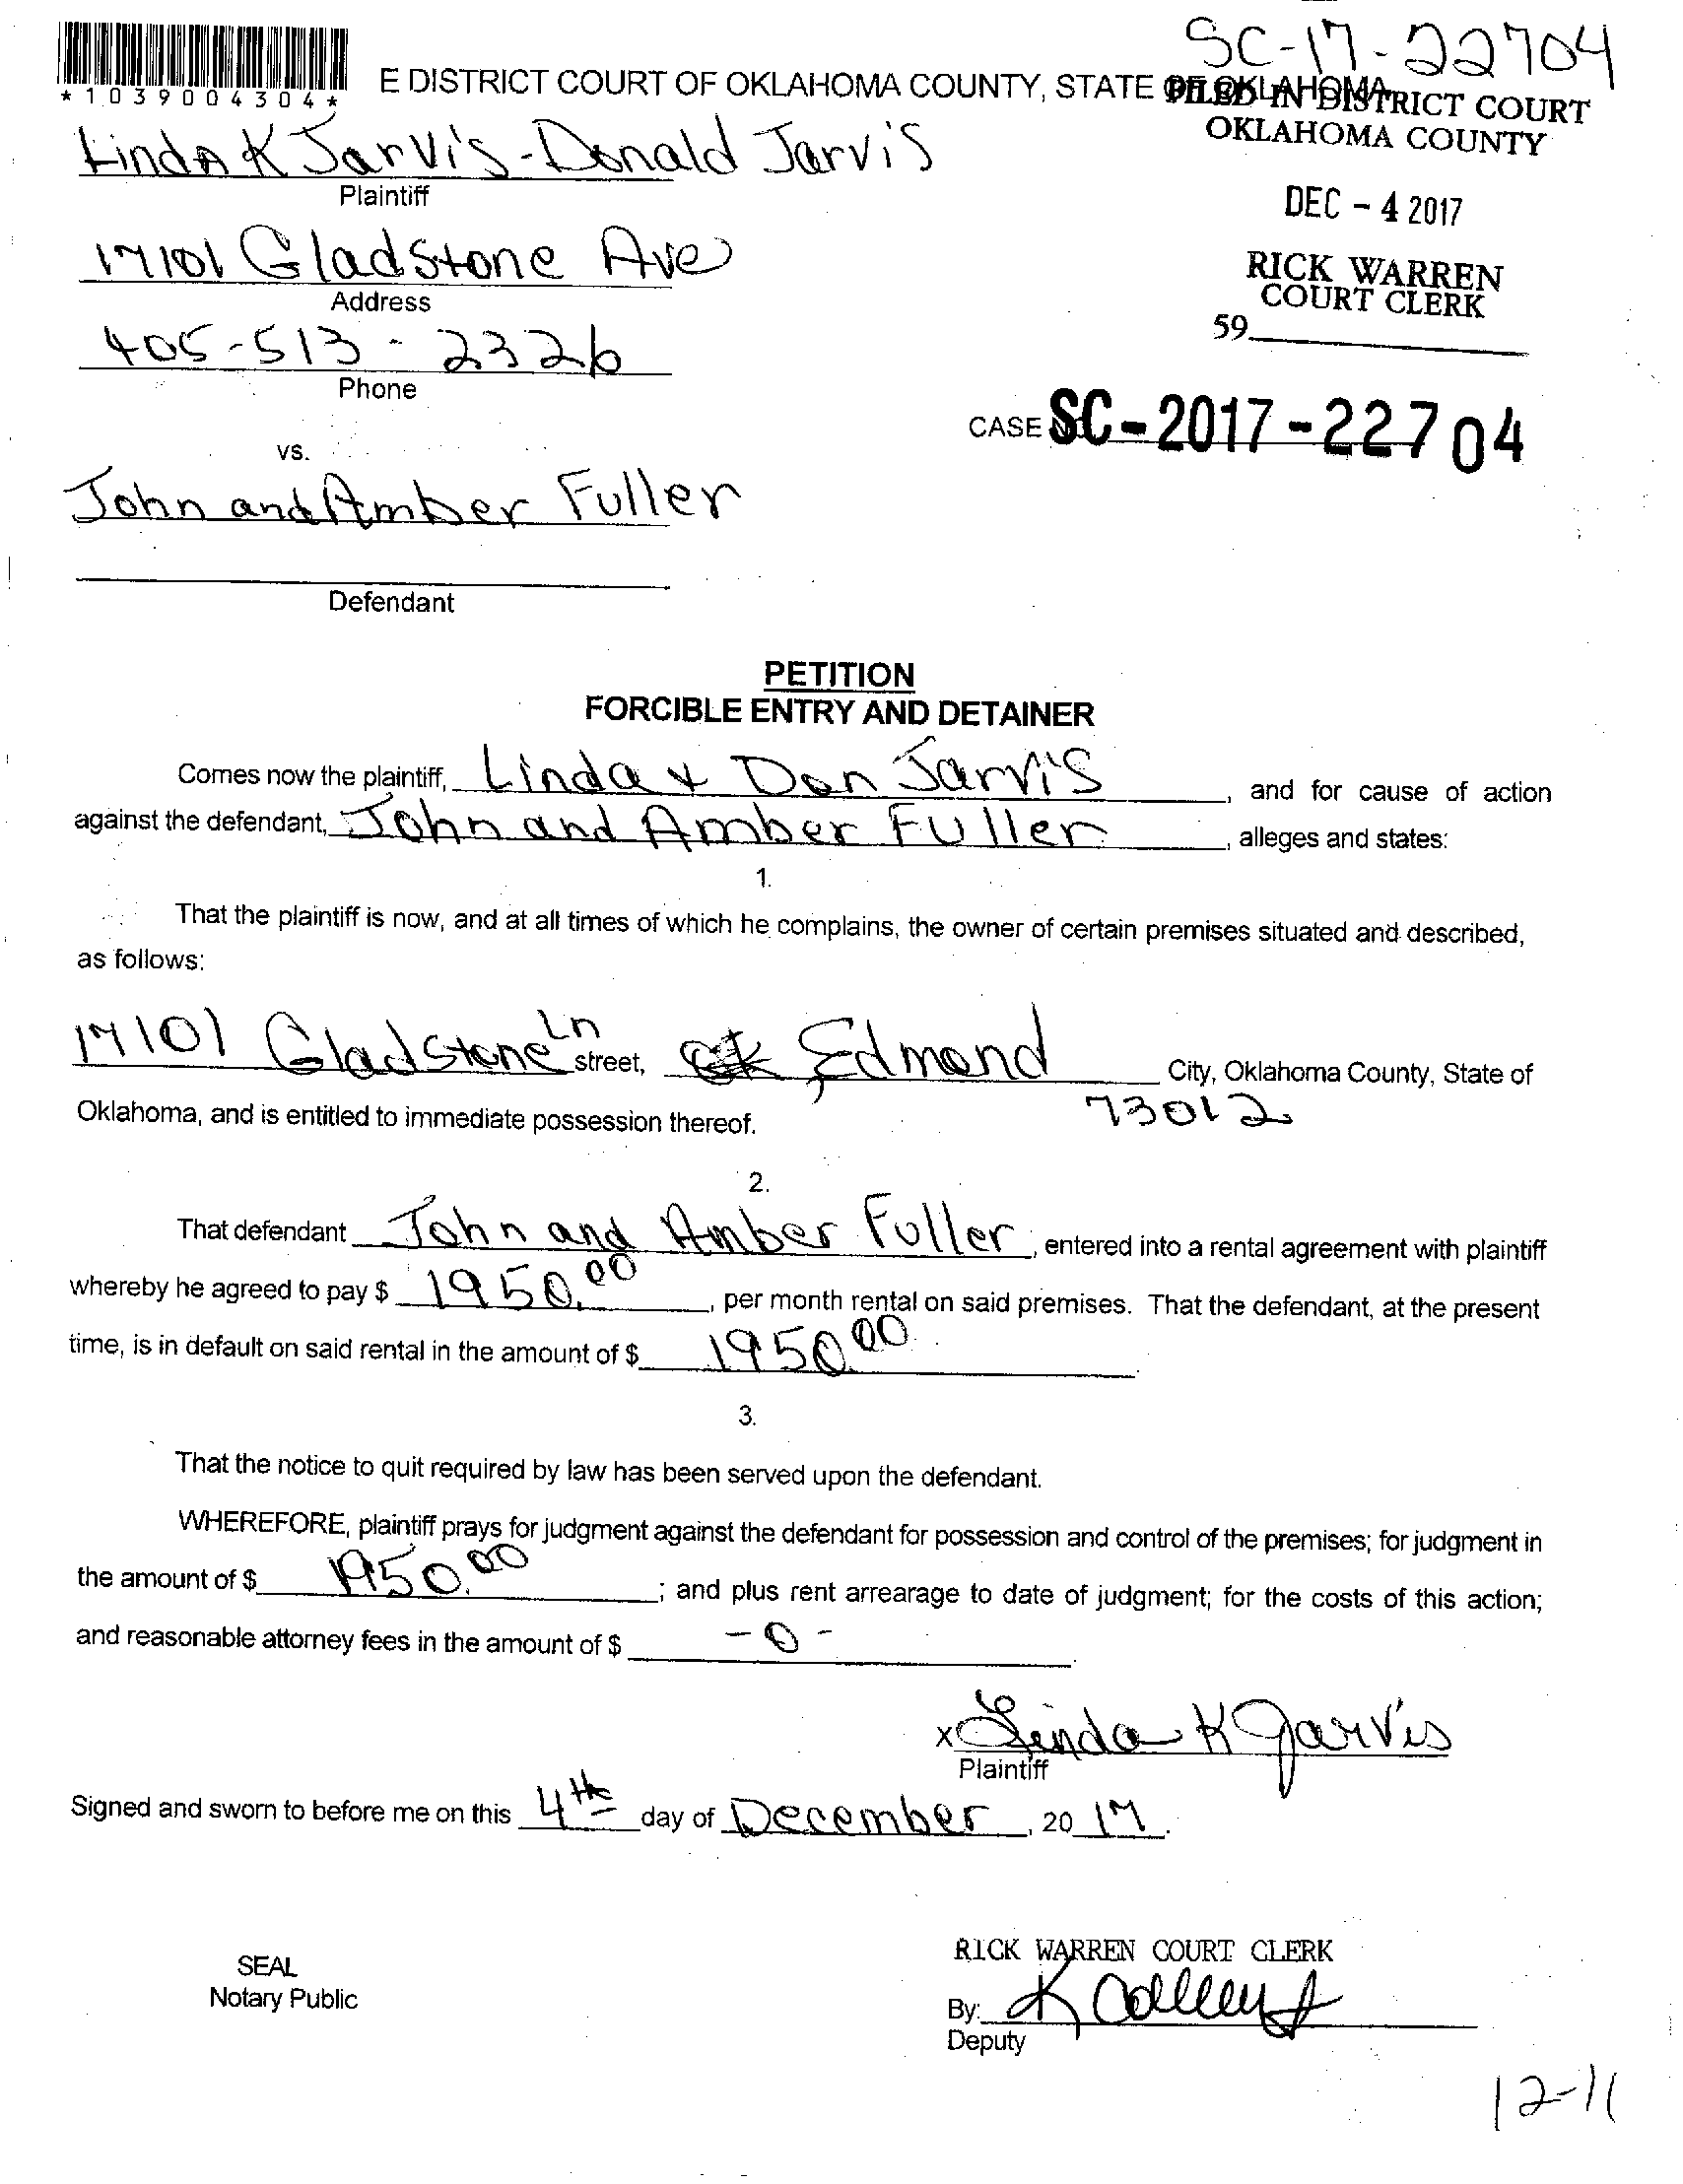 SC-17-22704
*1039004304*
E DISTRICT COURT OF OKLAHOMA COUNTY, STATE OF OKLAHOMA
FILED IN DISTRICT COURT
OKLAHOMA COUNTY
Linda K Jarvis-Donald Jarvis
Plaintiff
DEC - 4 2017
17101 Gladstone Ave
Address
RICK WARREN
COURT CLERK
59
405-513-2326
Phone
CASE SC-2017-22704
vs.
John and Amber Fuller
Defendant
PETITION
FORCIBLE ENTRY AND DETAINER
Comes now the plaintiff, Linda & Don Jarvis, and for cause of action
against the defendant, John and Amber Fuller, alleges and states:
1.
That the plaintiff is now, and at all times of which he complains, the owner of certain premises situated and described,
as follows:
17101 Gladstone Ln street, Edmond City, Oklahoma County, State of
Oklahoma, and is entitled to immediate possession thereof. 73012
2.
That defendant John and Amber Fuller, entered into a rental agreement with plaintiff
whereby he agreed to pay $ 1950.00, per month rental on said premises. That the defendant, at the present
time, is in default on said rental in the amount of $ 1950.00.
3.
That the notice to quit required by law has been served upon the defendant.
WHEREFORE, plaintiff prays for judgment against the defendant for possession and control of the premises; for judgment in
the amount of $ 1950.00; and plus rent arrearage to date of judgment; for the costs of this action;
and reasonable attorney fees in the amount of $ -0-.
x Linda K Jarvis
Plaintiff
Signed and sworn to before me on this 4th day of December, 2017.
RICK WARREN COURT CLERK
SEAL
Notary Public
By: K
Deputy
12-11